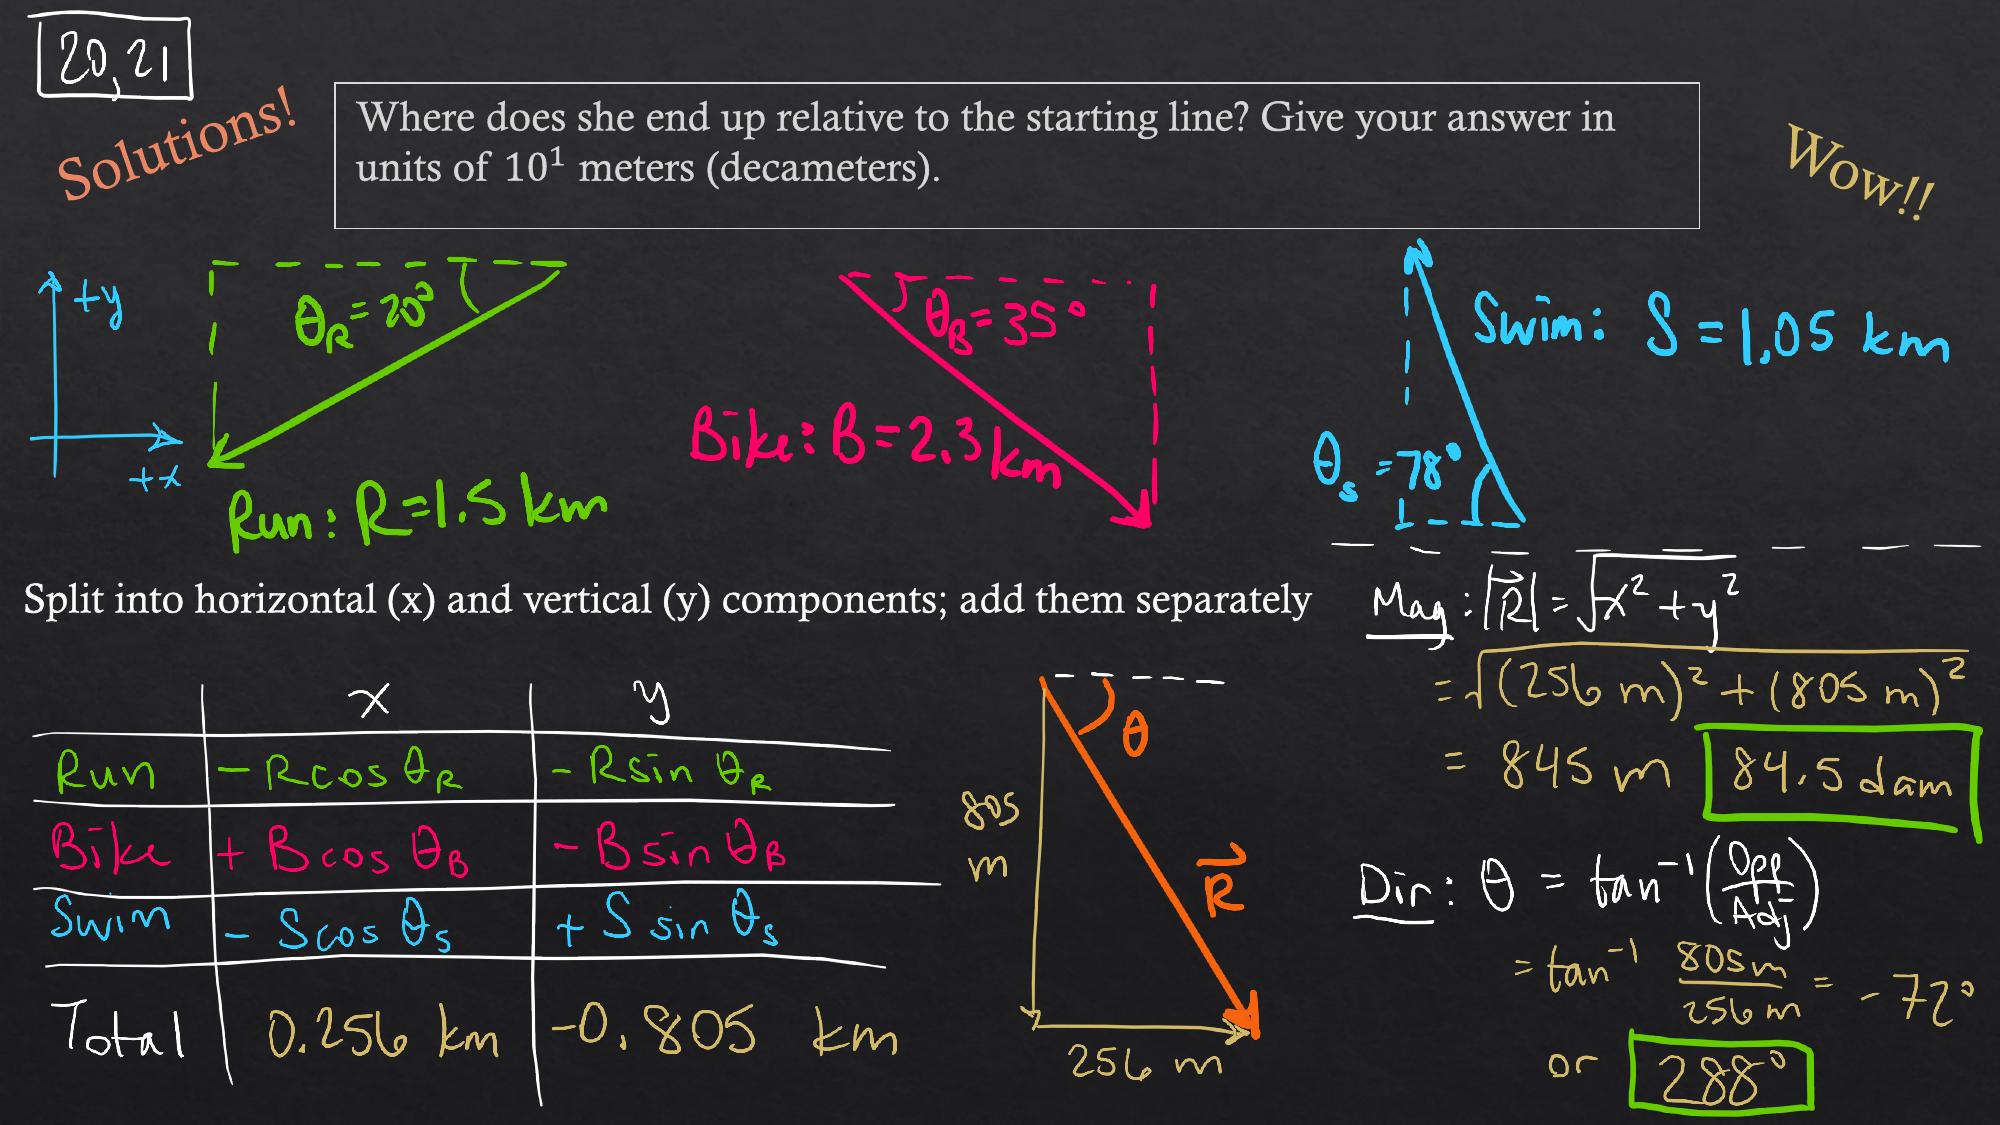 20,21
Solutions!
Where does she end up relative to the starting line? Give your answer in
units of 10¹ meters (decameters).
Wow!!
+y
+x
θR = 20°
Run: R=1.5 km
θB = 35°
Bike: B=2.3 km
Swim: S = 1.05 km
θs = 78°
Split into horizontal (x) and vertical (y) components; add them separately
x y
Run - R cos θR - R sin θR
Bike + B cos θB - B sin θB
Swim - S cos θs + S sin θs
Total 0.256 km -0.805 km
θ
805
m
R⃗
256 m
Mag: |R⃗| = √x² + y²
= √(256 m)² + (805 m)²
= 845 m 84.5 dam
Dir: θ = tan⁻¹(Opp/Adj)
= tan⁻¹ 805m/256m = -72°
or 288°